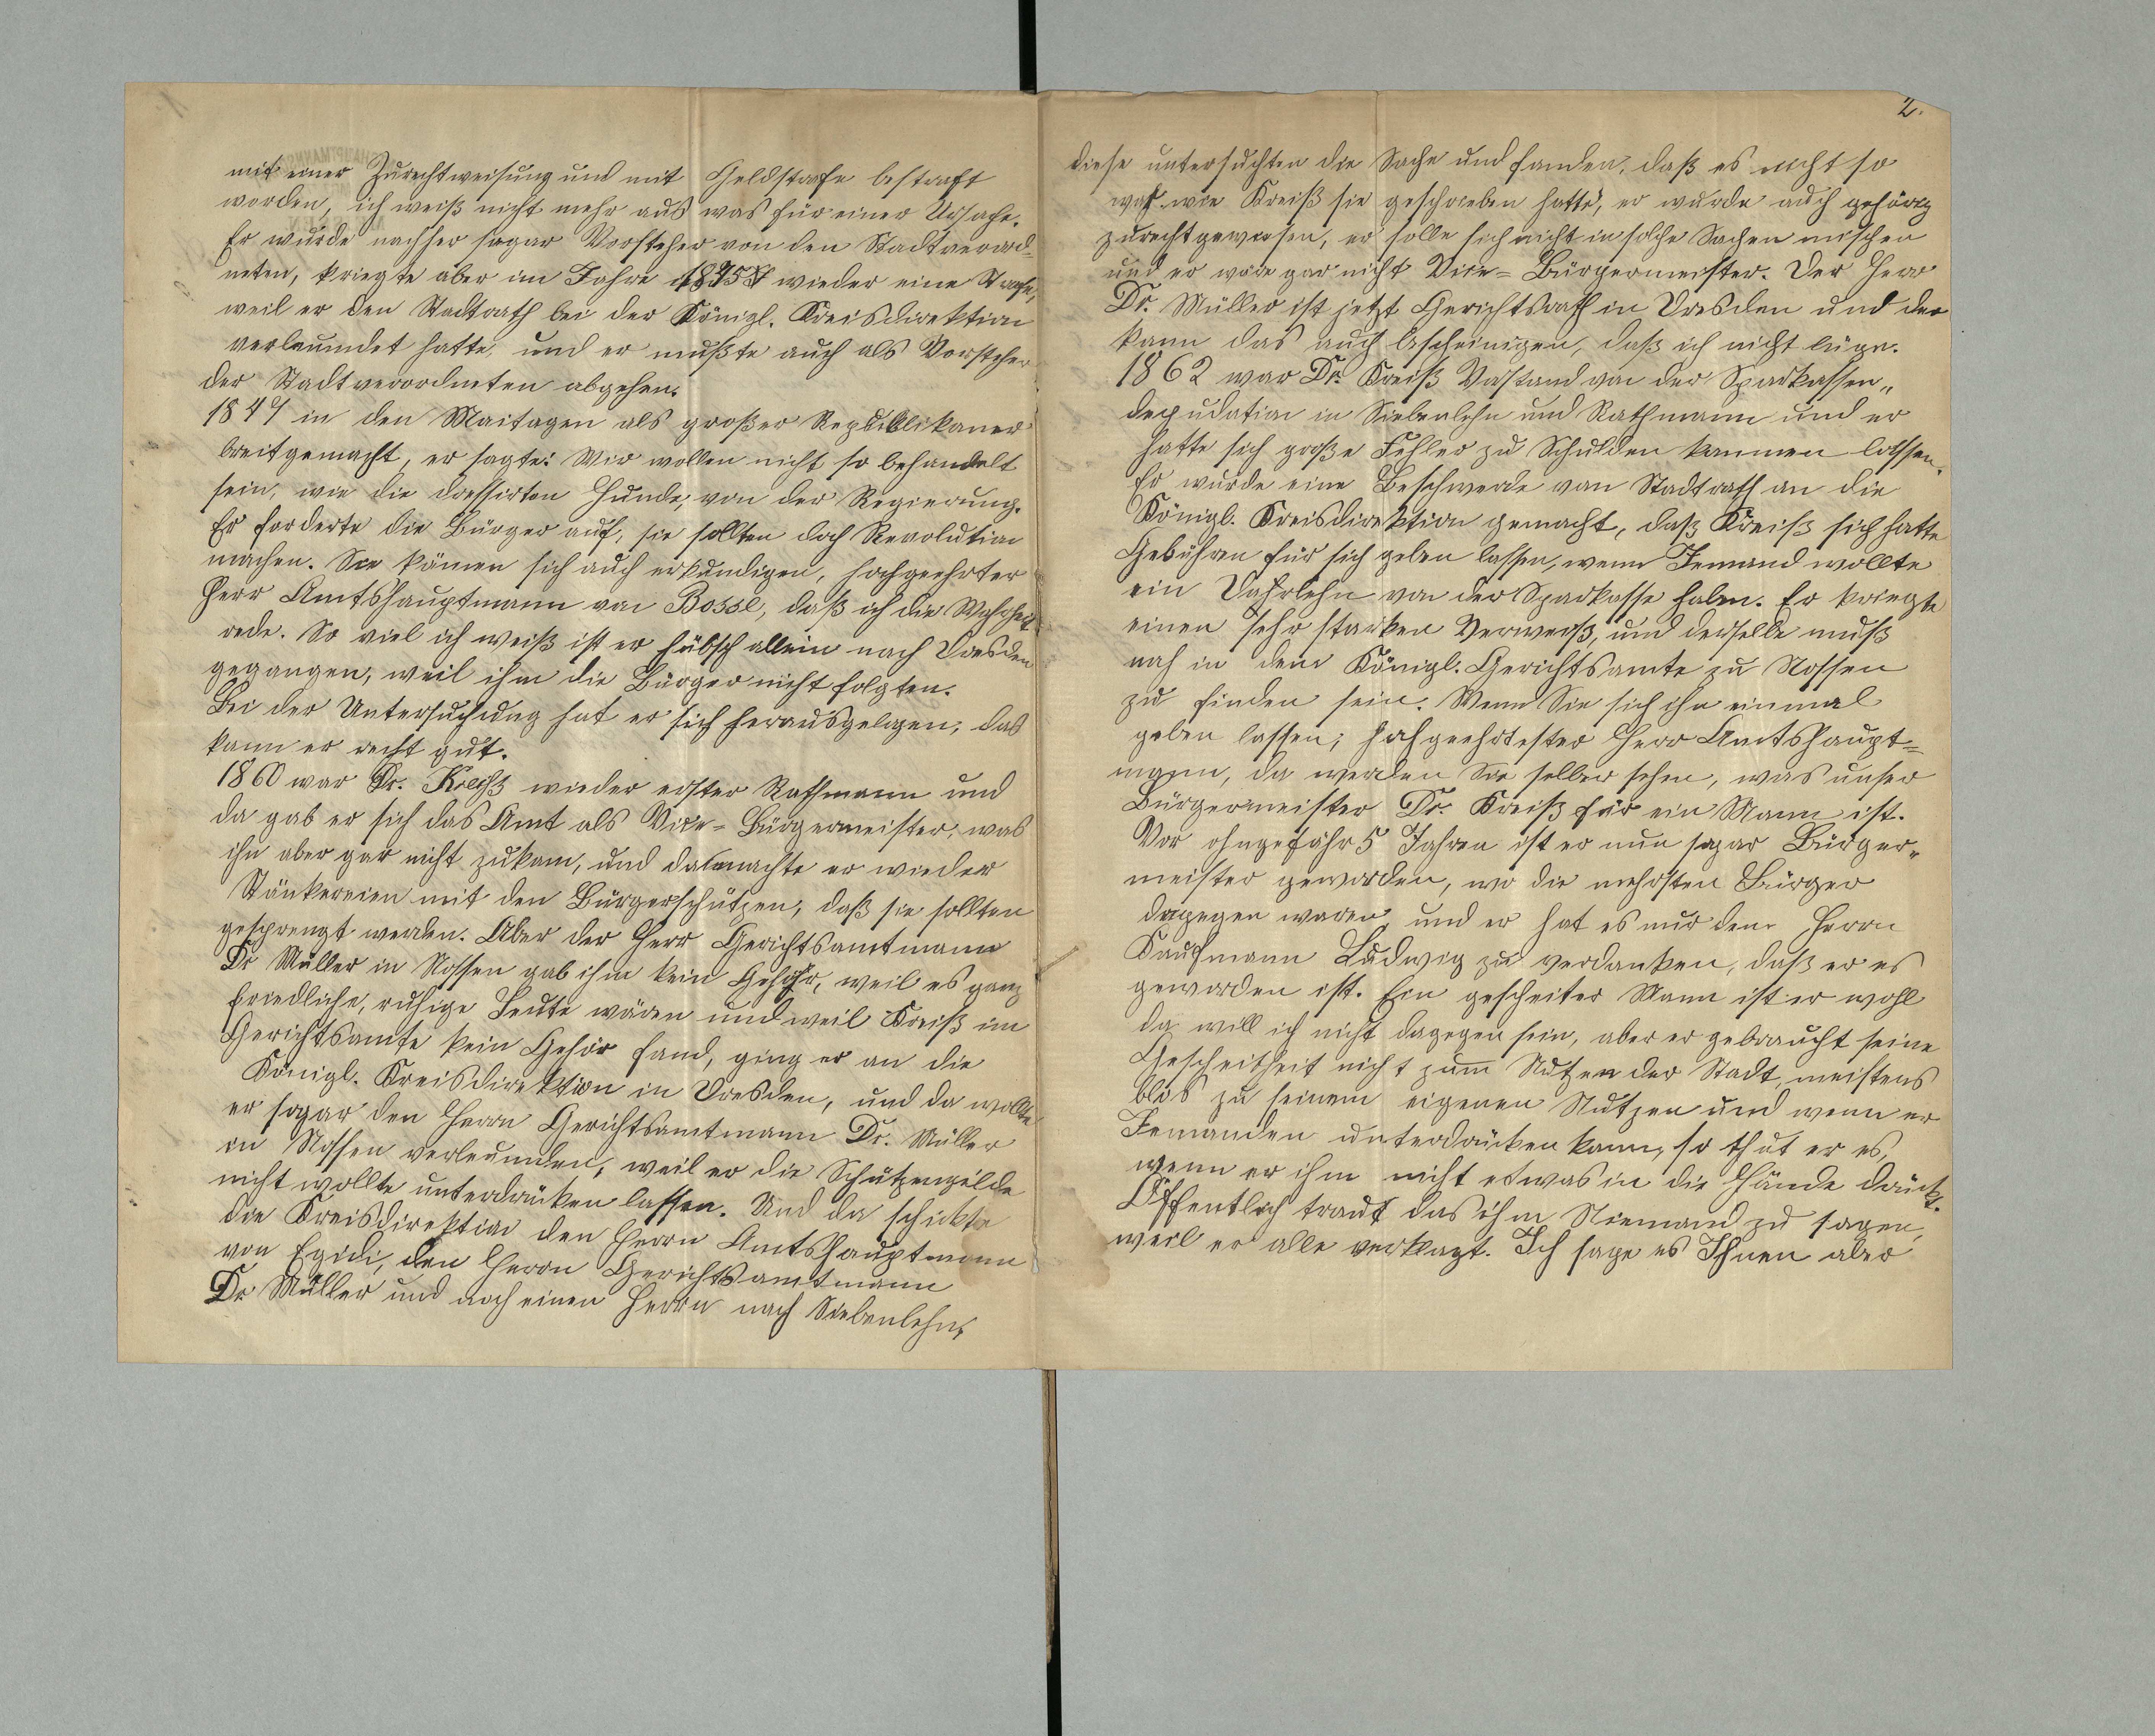 mit einer Zurechtweisung und mit Geldstrafe bestraft
worden, ich weiß nicht mehr aus was für einer Ursache.
Er wurde nachher sogar Vorsteher von den Stadtverord-
neten, kriegte aber im Jahre wieder eine Strafe,
weil er den Stadtrath bei der Königl. Kreisdirektion
verleumdet hatte, und er mußte auch als Vorsteher
der Stadtverordneten abgehen.
in den Maitagen als großer Republikaner
breitgemacht, er sagte: Wir wollen nicht so behandelt
sein, wie die dressirten Hunde, von der Regierung.
Er forderte die Bürger auf, sie sollten doch Revolution
machen. Sie können sich auch erkundigen, hochgeehrter
Herr Amtshauptmann von Bosse, daß ich die Wahrheit
rede. So viel ich weiß ist er hübsch allein nach Dresden
gegangen, weil ihm die Bürger nicht folgten.
Bei der Untersuchung hat er sich herausgelogen, das
kann er recht gut.
1860 war Dr. Kreiß wieder erster Rathmann und
da gab er sich das Amt als Vice-Bürgermeister, was
ihn aber gar nicht zukam, und da machte er wieder
Stänkereien mit den Bürgerschützen, daß sie sollten
gesprengt werden. Aber der Herr Gerichtsamtmann
Dr Müller in Nossen gab ihm kein Gehör, weil es ganz
friedliche, ruhige Leute wären und weil Kreiß im
Gerichtsamte kein Gehör fand, ging er an die
Königl. Kreisdirektion in Dresden, und da wollte
er sogar den Herrn Gerichtsamtmann Dr. Müller
in Nossen verleumden, weil er die Schützengilde
nicht wollte unterdrücken lassen. Und da schickte
die Kreisdirektion den Herrn Amtshauptmann
von Egidi, den Herrn Gerichtsamtmann
Dr Müller und noch einen Herrn nach Siebenlehn,
2.
diese untersuchten die Sache und fanden, daß es nicht so
war wie Kreiß sie geschrieben hatte, er wurde auch gehörig
zurechtgewiesen, er solle sich nicht in solche Sachen mischen
und er wäre gar nicht Vice-Bürgermeister. Der Herr
Dr. Müller ist jetzt Gerichtsrath in Dresden und der
kann das auch bescheinigen, daß ich nicht lüge.
1862 war Dr. Kreiß Vorstand von der Sparkassen„
depudation in Siebenlehn und Rathmann und er
hatte sich große Fehler zu Schulden kommen lassen.
Er wurde eine Beschwerde vom Stadtrath an die
Königl. Kreisdirektion gemacht, daß Kreiß sich hatte
Gebühren für sich geben lassen, wenn Jemand wollte
ein Dahrlehn von der Sparkasse haben. Er kriegte
einen sehr starken Verweiß, und derselbe muß
noch in dem Königl. Gerichtsamte zu Nossen
zu finden sein. Wenn Sie sich ihn einmal
geben lassen, hochgeehrtester Herr Amtshaupt-
mann, da werden Sie selber sehen, was unser
Bürgermeister Dr. Kreiß für ein Mann ist.
Vor ohngefähr 5 Jahren ist er nun sogar Bürger„
meister geworden, wo die mehrsten Bürger
dagegen waren, und er hat es nur dem Herrn
Kaufmann Ludwig zu verdanken, daß er es
geworden ist. Ein gescheiter Mann ist er wohl
da will ich nicht dagegen sein, aber er gebraucht seine
Gescheitheit nicht zum Nutzen der Stadt, meistens
blos zu seinem eigenen Nutzen und wenn er
Jemanden unterdrücken kann, so thut er es,
wenn er ihm nicht etwas in die Hände drückt.
Öffentlich traut das ihm Niemand zu sagen,
weil er alle verklagt. Ich sage es Ihnen aber